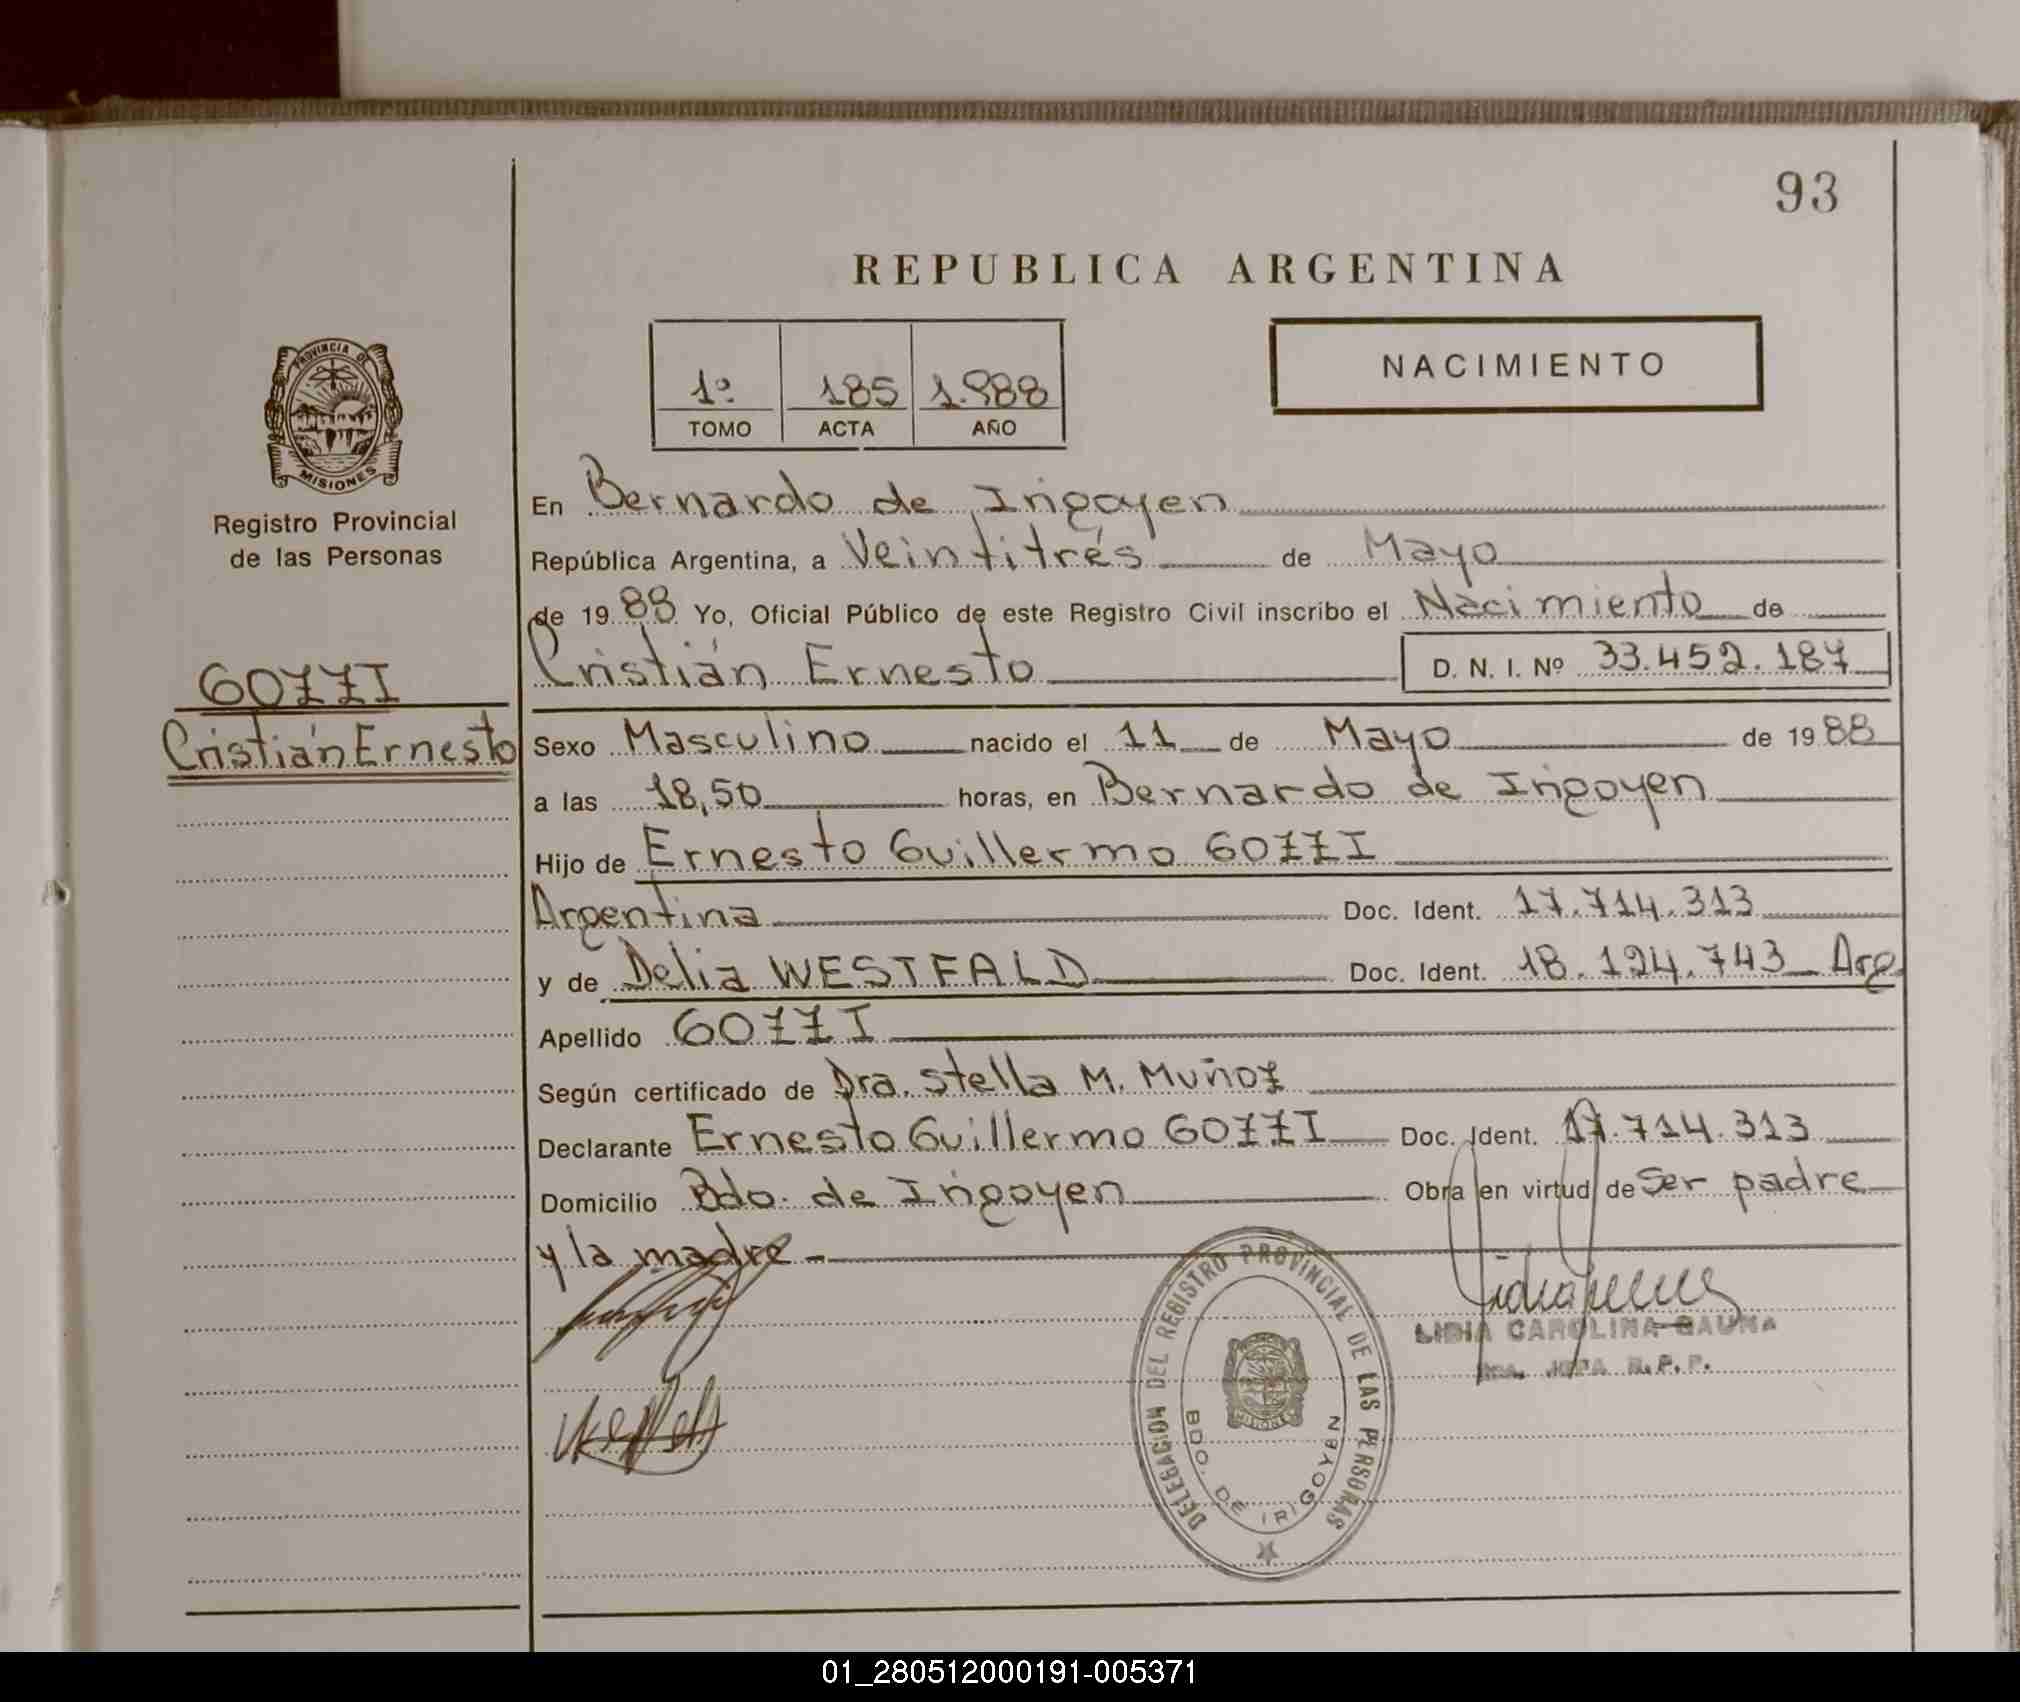 93
REPUBLICA ARGENTINA
1º 185 1.988
TOMO ACTA AÑO
NACIMIENTO
PROVINCIA DE
MISIONES
Registro Provincial
de las Personas
GOZZI
Cristián Ernesto
En Bernardo de Irigoyen
República Argentina, a Veintitrés de Mayo
de 1988 Yo, Oficial Público de este Registro Civil inscribo el Nacimiento de
Cristián Ernesto D. N. I. Nº 33.452.187
Sexo Masculino nacido el 11 de Mayo de 1988
a las 18,50 horas, en Bernardo de Irigoyen
Hijo de Ernesto Guillermo GOZZI
Argentina Doc. Ident. 17.714.313
y de Delia WESTFALD Doc. Ident. 18.124.743 Arg
Apellido GOZZI
Según certificado de Dra. Stella M. Muñoz
Declarante Ernesto Guillermo GOZZI Doc. Ident. 17.714.313
Domicilio Bdo. de Irigoyen Obra en virtud de Ser padre
y la madre -
DELEGACION DEL REGISTRO PROVINCIAL DE LAS PERSONAS
BDO. DE IRIGOYEN
MISIONES
LIDIA CAROLINA GAUNA
JEFA R.P.P.
01_280512000191-005371